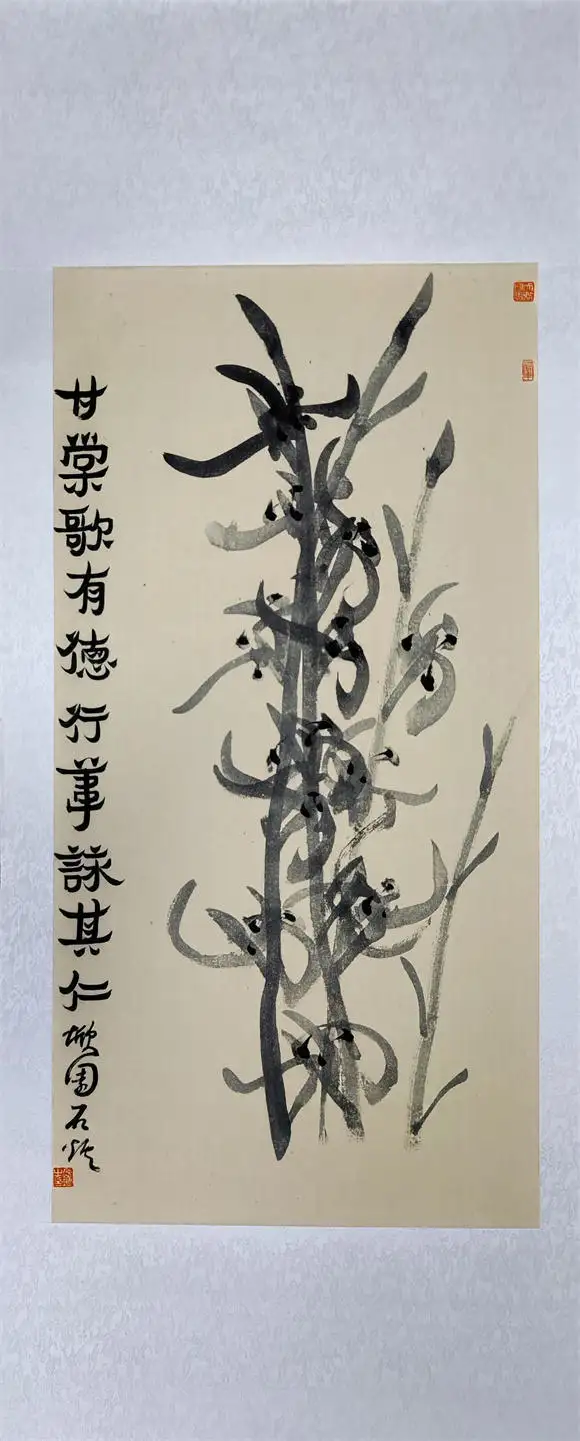 甘棠歌有德行葦詠其仁
園石